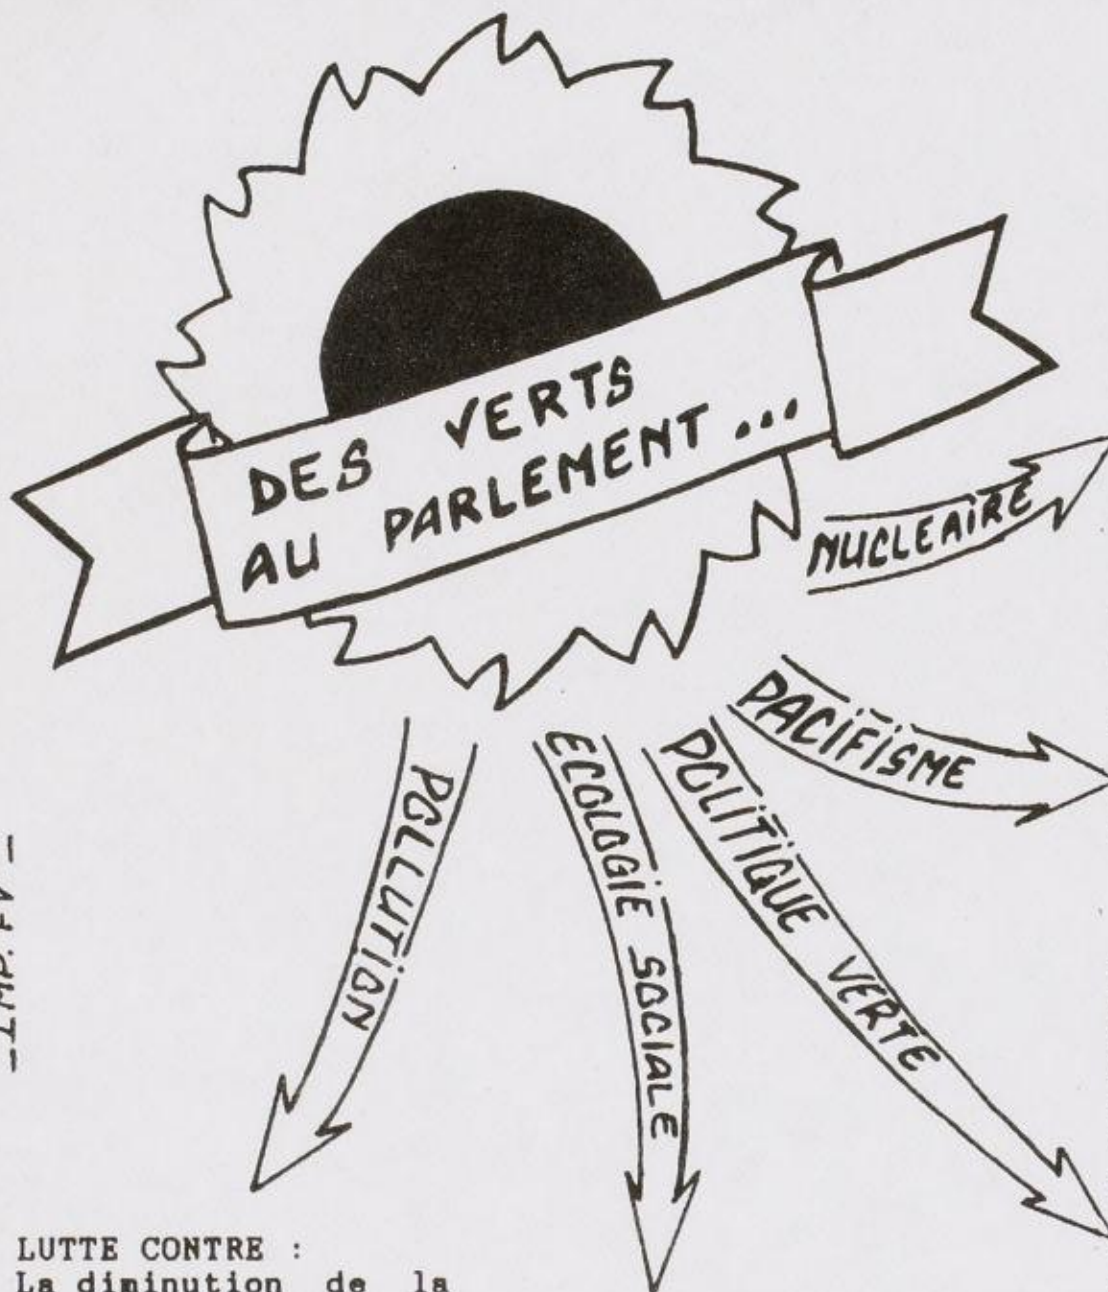 DES VERTS
AU PARLEMENT...
NUCLEAIRE
PACIFISME
POLITIQUE VERTE
ECOLOGIE SOCIALE
POLLUTION
LUTTE CONTRE :
La diminution de la